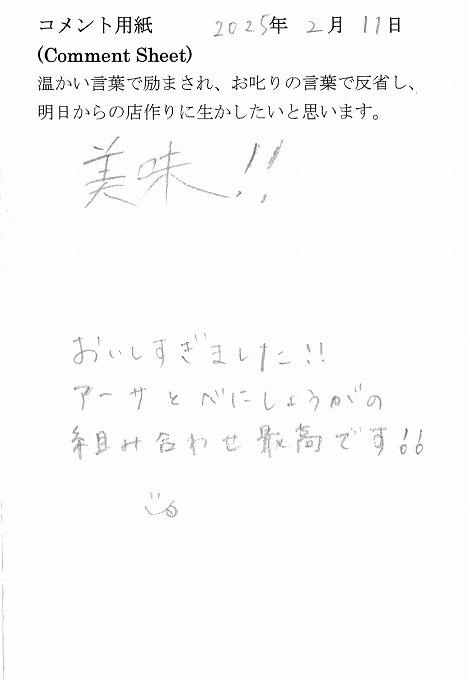 コメント用紙 2025年 2月 11日
(Comment Sheet)
温かい言葉で励まされ、お叱りの言葉で反省し、
明日からの店作りに生かしたいと思います。
美味!!
おいしすぎました!!
アーサとべにしょうがの
組み合わせ最高です!!